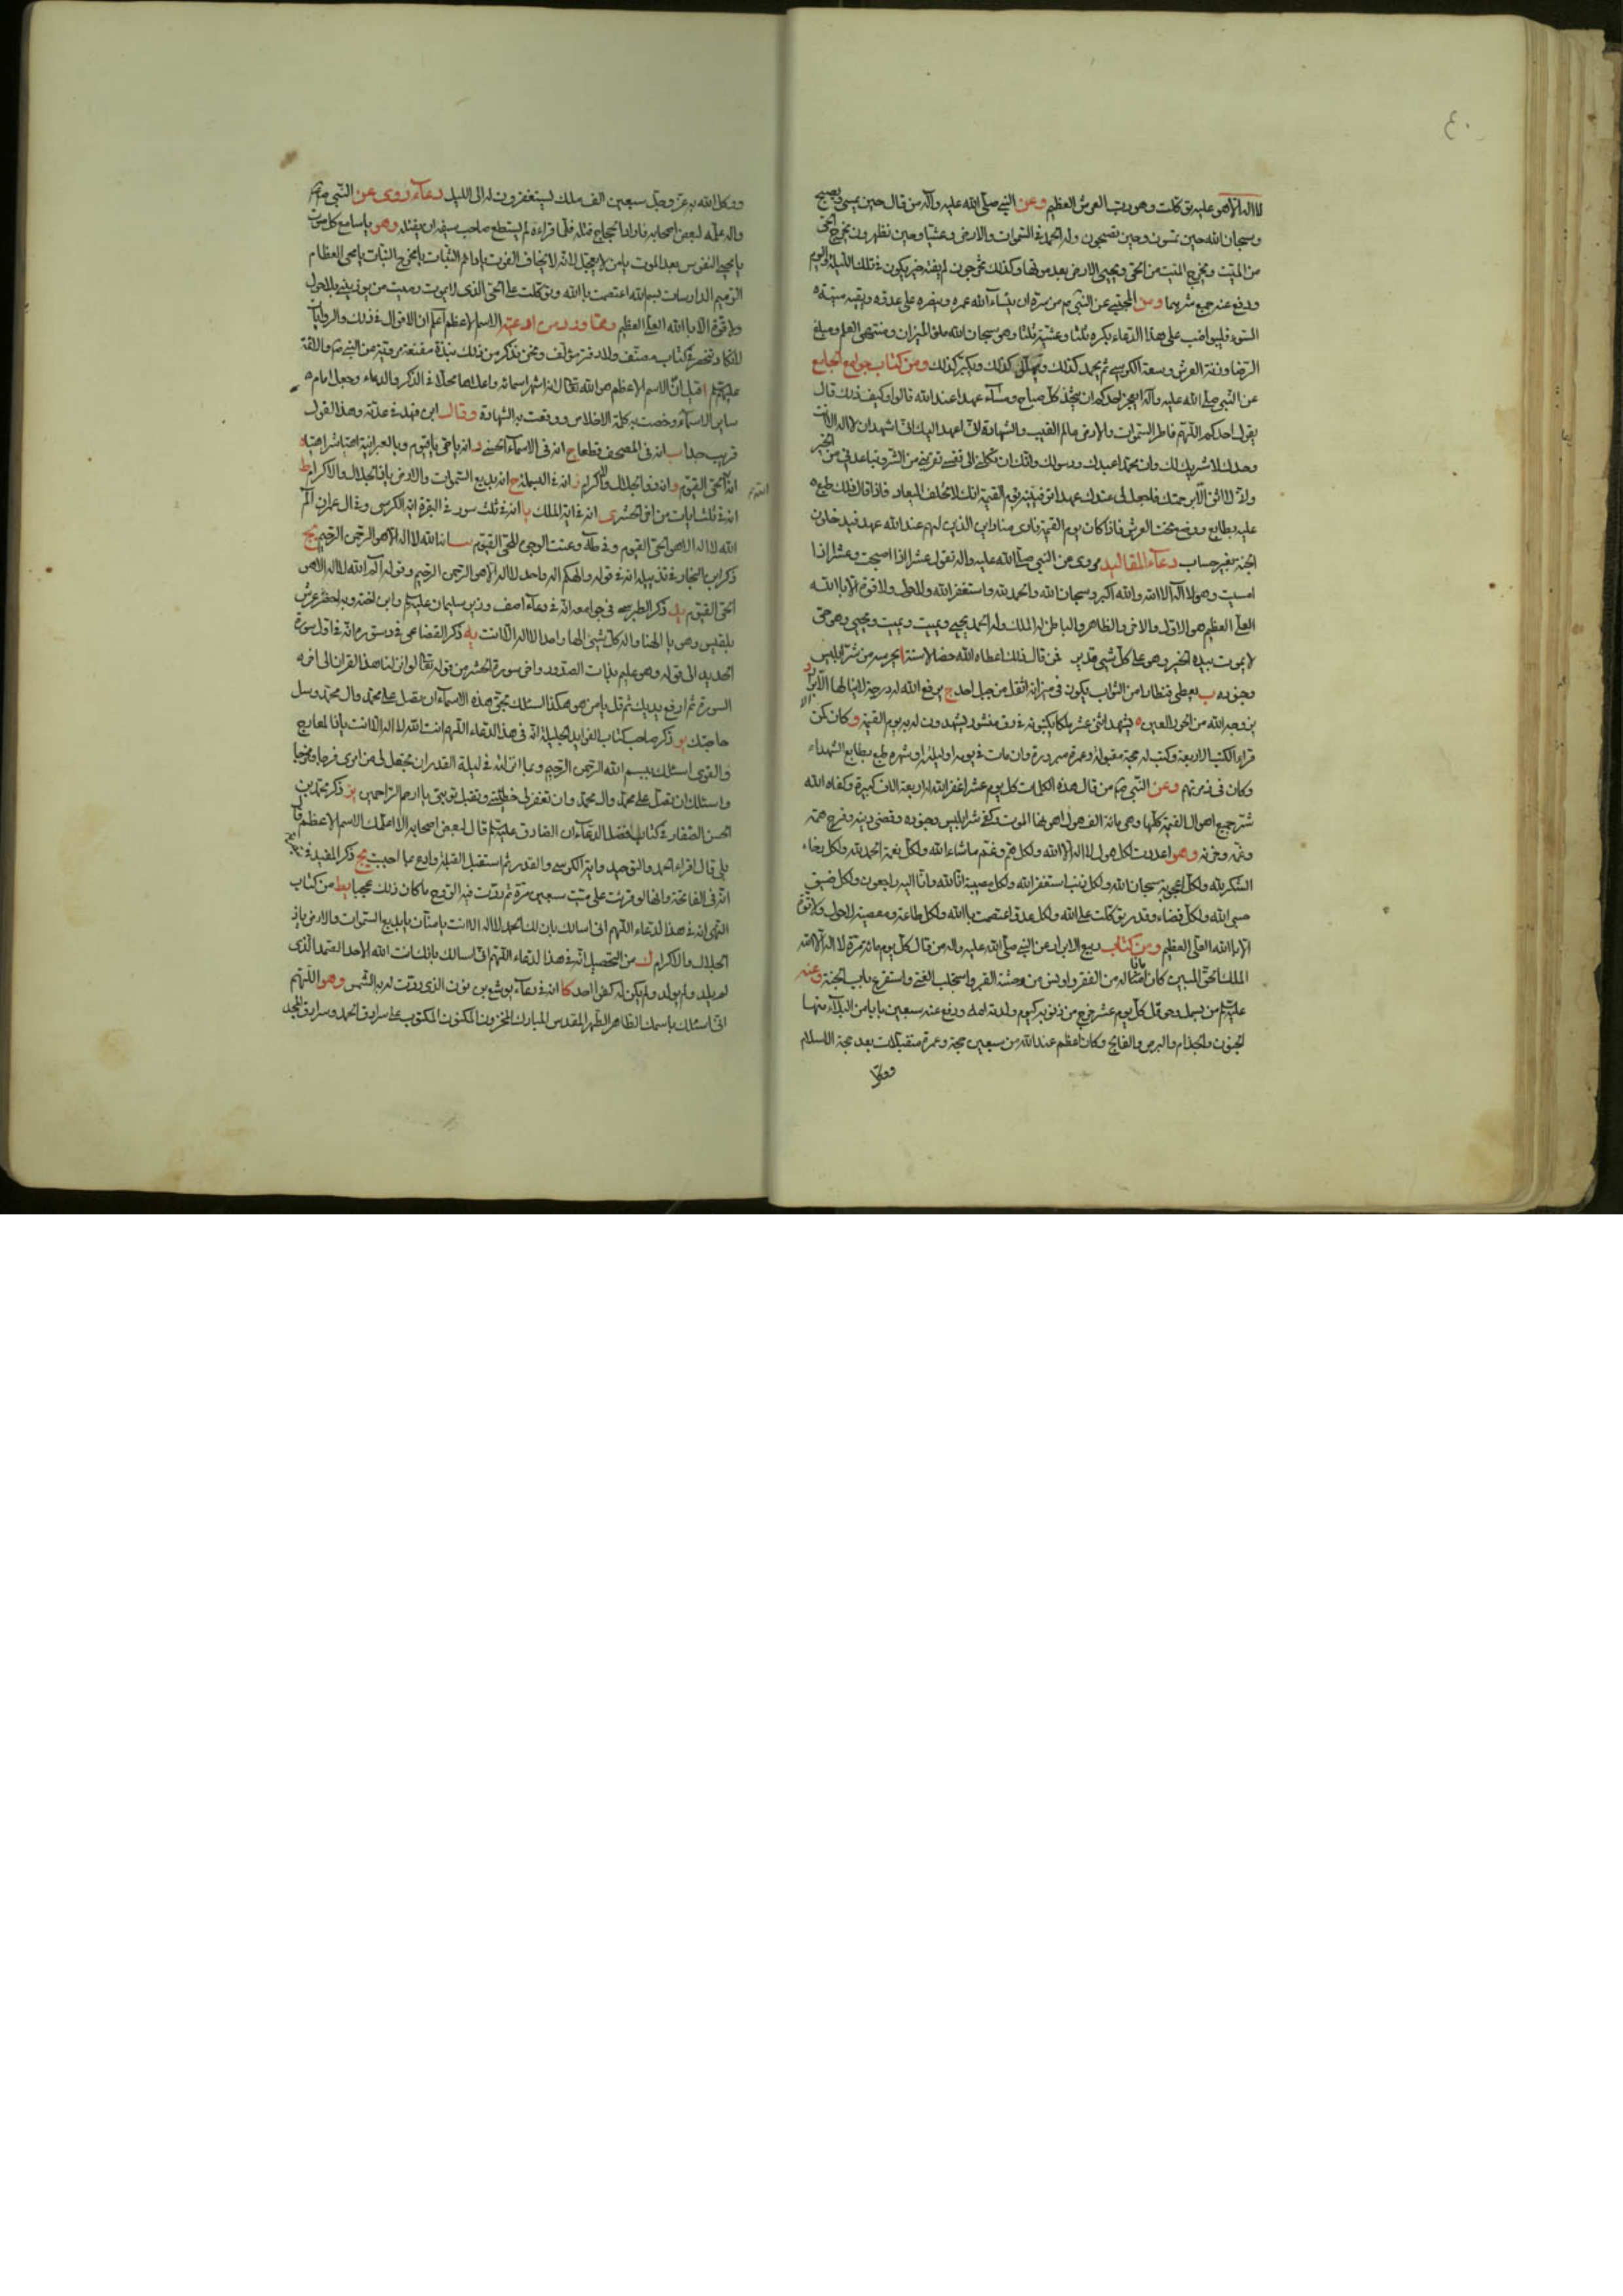 ٤٠
لا اله الا هو عليه توكلت وهو رب العرش العظيم وعن النبي صلى الله عليه وآله من قال حين يمسي ويصبح
وسبحان الله حين تمسون وحين تصبحون وله الحمد في السموات والارض وعشيا وحين تظهرون يخرج الحي
من الميت ويخرج الميت من الحي ويحيي الارض بعد موتها وكذلك تخرجون لم يفته خير يكون في تلك الليلة واليوم
ودفع عنه جميع شرهما ومن المجتبى عن النبي ص من سره ان ينساء الله عمره وينصره على عدوه ويقيه ميتة
السوء فليواضب على هذا الدعاء بكرة ثلثا وعشية ثلثا وهو سبحان الله ملؤ الميزان ومنتهى العلم ومبلغ
الرضا وزنة العرش وسعة الكرسي ثم يحمد كذلك ويهلل كذلك ويكبر كذلك ومن كتاب جوامع الجامع
عن النبي صلى الله عليه وآله ايعجز احدكم ان يتخذ كل صباح ومساء عهدا عند الله قالوا وكيف ذلك قال
يقول احدكم اللهم فاطر السموات والارض عالم الغيب والشهادة اني اعهد اليك اني اشهد ان لا اله الا انت
وحدك لا شريك لك وان محمدا عبدك ورسولك وانك ان تكلني الى نفسي تقربني من الشر وتباعدني من الخير
واني لا اثق الا برحمتك فاجعل لي عندك عهدا توفينيه يوم القيمة انك لا تخلف الميعاد فاذا قال ذلك طبع
عليه بطابع ووضع تحت العرش فاذا كان يوم القيمة نادى مناد اين الذين لهم عند الله عهد فيدخلون
الجنة بغير حساب دعاء المقاليد مروى عن النبي صلى الله عليه واله تقول عشرا اذا اصبحت وعشرا اذا
امسيت وهو لا اله الا الله والله اكبر وسبحان الله والحمد لله واستغفر الله ولا حول ولا قوة الا بالله
العلي العظيم هو الاول والاخر والظاهر والباطن له الملك وله الحمد يحيي ويميت ويميت ويحيي وهو حي
لا يموت بيده الخير وهو على كل شيء قدير فمن قال ذلك اعطاه الله خصالا ستة ا يحرسه من شر ابليس
وجنوده ب يعطى قنطارا من الثواب يكون في ميزانه اثقل من جبل احد ج يرفع الله له درجة لا ينالها الا الابرار
د يزوجه الله من الحور العين ه يشهد اثنى عشر ملكا يكتبونه في رق منشور يشهدون له به يوم القيمة و كان كمن
قراء الكتب الاربعة وكتب له حجة مقبولة وعمرة مبرورة وان مات في يومه او ليلته او شهره طبع بطابع الشهداء
وكان في زمرتهم وعن النبي ص من قال هذه الكلمات كل يوم عشرا غفر الله له اربعة الاف كبيرة وكفاه الله
شر جميع اهوال القيمة كلها وهي مائة الف هول اهونها الموت وكفي شر ابليس وجنوده وقضى دينه وفرج همه
وغمه وحزنه وهو اعددت لكل هول لا اله الا الله ولكل هم وغم ما شاء الله ولكل نعمة الحمد لله ولكل رخاء
الشكر لله ولكل اعجوبة سبحان الله ولكل ذنب استغفر الله ولكل مصيبة انا لله وانا اليه راجعون ولكل ضيق
حسبي الله ولكل قضاء وقدر توكلت على الله ولكل عدو اعتصمت بالله ولكل طاعة ومعصية لا حول ولا قوة
الا بالله العلي العظيم ومن كتاب ربيع الابرار عن النبي صلى الله عليه واله من قال كل يوم مائة مرة لا اله الا الله
الملك الحق المبين كان امانا له من الفقر واونس من وحشة القبر واستجلب الغنى واستقرع باب الجنة وعنه
عليه السلم من بسمل وحوقل كل يوم عشرا خرج من ذنوبه كيوم ولدته امه ودفع عنه سبعين بابا من البلاء منها
الجنون والجذام والبرص والفالج وكان اعظم عند الله من سبعين حجة وعمرة متقبلات بعد حجة الاسلام
ووكل
ووكل الله به عز وجل سبعين الف ملك يستغفرون له الى الليل دعاء روى عن النبي ص
واله علمه لبعض اصحابه فاراد الحجاج قتله فلما قراءه لم يستطع صاحب سيفه ان يقتله وهو يا سامع كل صوت
يا محيي النفوس بعد الموت يا من لا يعجل لانه لا يخاف الفوت يا دائم الثبات يا مخرج النبات يا محيي العظام
الرميم الدارسات بسم الله اعتصمت بالله وتوكلت على الحي الذي لا يموت ورميت من يؤذيني بلا حول
ولا قوة الا بالله العلي العظيم ومما ورد من ادعية الاسم الاعظم اعلم ان الاقوال في ذلك والروايات
لا تكاد تنحصر في كتاب مصنف ولا دفتر مؤلف ونحن نذكر من ذلك نبذة مقنعة مروية عن النبي ص والائمة
عليهم السلم ا قيل ان الاسم الاعظم هو الله تعالى لانه اشهر اسمائه واعلاها محلا في الذكر والدعاء وجعل امام
ساير الاسماء وخصت به كلمة الاخلاص ووقعت به الشهادة وقال ابن فهد في عدته وهذا القول
قريب جدا ب انه في المصحف قطعا ج انه في الاسماء الحسنى د انه يا حي يا قيوم وبالعبرانية اهيا شراهيا ه
انه الحي القيوم و انه ذو الجلال والاكرام ز انه في البسملة ح انه بديع السموات والارض يا ذا الجلال والاكرام ط
انه في ثلث ايات من اخر الحشر ى انه في اية الملك يا انه في ثلث سور في البقرة اية الكرسي وفي ال عمران الم
الله لا اله الا هو الحي القيوم وفي طه وعنت الوجوه للحي القيوم يب انه الله لا اله الا هو الرحمن الرحيم يج
ذكر ابن النجار في تذييله انه في قوله والهكم اله واحد لا اله الا هو الرحمن الرحيم وقوله الم الله لا اله الا هو
الحي القيوم يد ذكر الطبرسي في جوامعه انه في دعاء اصف وزير سليمان عليه السلم وابن اخته وبه احضر عرش
بلقيس وهو يا الهنا واله كل شيء الها واحدا لا اله الا انت يه ذكر القضاعي في دستوره انه في اول سورة
الحديد الى قوله وهو عليم بذات الصدور واخر سورة الحشر من قوله تعالى لو انزلنا هذا القران الى اخر
السورة ثم ارفع يديك ثم قل يا من هو هكذا اسئلك بحق هذه الاسماء ان تصلي على محمد وال محمد وسل
حاجتك يو ذكر صاحب كتاب الفوايد الجليلة انه في هذا الدعاء اللهم انت الله لا اله الا انت يا ذا المعارج
والقوى اسئلك ببسم الله الرحمن الرحيم وبما انزلته في ليلة القدر ان تجعل لي من امري فرجا ومخرجا
واسئلك ان تصلي على محمد وال محمد وان تغفر لي خطيئتي وتقبل توبتي يا ارحم الراحمين يز ذكر محمد بن
الحسن الصفار في كتاب فضل الدعاء ان الصادق عليه السلم قال لبعض اصحابه الا اعلمك الاسم الاعظم قال
بلى قال اقراء الحمد والتوحيد واية الكرسي والقدر ثم استقبل القبلة وادع بما احببت يح ذكر المفيد في
انه في الفاتحة وانها لو قرئت على ميت سبعين مرة ثم ردت فيه الروح ما كان ذلك عجبا يط من كتاب
التهى انه في هذا الدعاء اللهم اني اسالك بان لك الحمد لا اله الا انت يا منان يا بديع السموات والارض يا ذا
الجلال والاكرام ك من التحصيل انه في هذا الدعاء اللهم اني اسالك بانك انت الله الاحد الصمد الذي
لم يلد ولم يولد ولم يكن له كفوا احد كا انه في دعاء يوشع بن نون الذي ردت له به الشمس وهو اللهم
اني اسئلك باسمك الطاهر المطهر المقدس المبارك المخزون المكنون المكتوب على سرادق الحمد وسرادق المجد